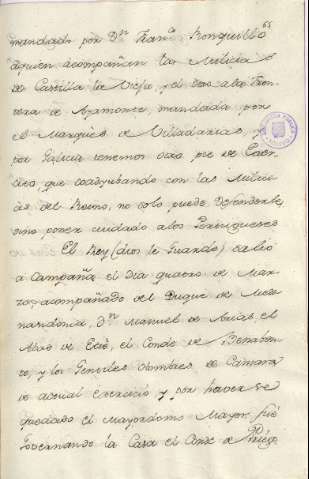 65
mandada por Dn Franco Ronquillo
aquien acompañan las Milicias
de Castilla la Vieja, y el otro ala Fron
tera de Ayamonte, mandada por
el Marques de Villadarias, y
por Galicia tenemos otro pie de Exer
cito, que coadyubando con las Milici
as del Reyno, no solo puede defenderse,
sino poner cuidado alos Portugueses
El Rey (Dios le Guarde) salio
a Campaña el dia quatro de Mar
zo acompañado del Duque de Medi
nasidonia, Dn Manuel de Arias, el
de Etré, el Conde de Benaben
te, y los Gentiles hombres de Camara
de actual exercicio y por haverse
quedado el Mayordomo Mayor, fué
Governando la Casa el Conde de Priego